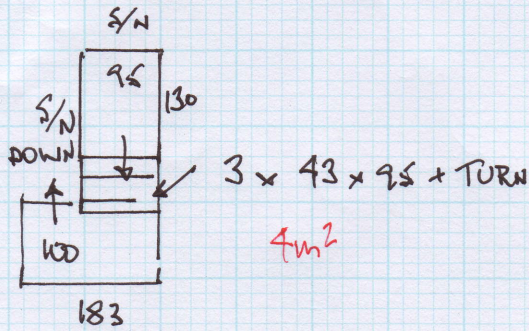 S/N
95
130
S/N
DOWN
3 x 43 x 95 + TURN
100
4m²
183